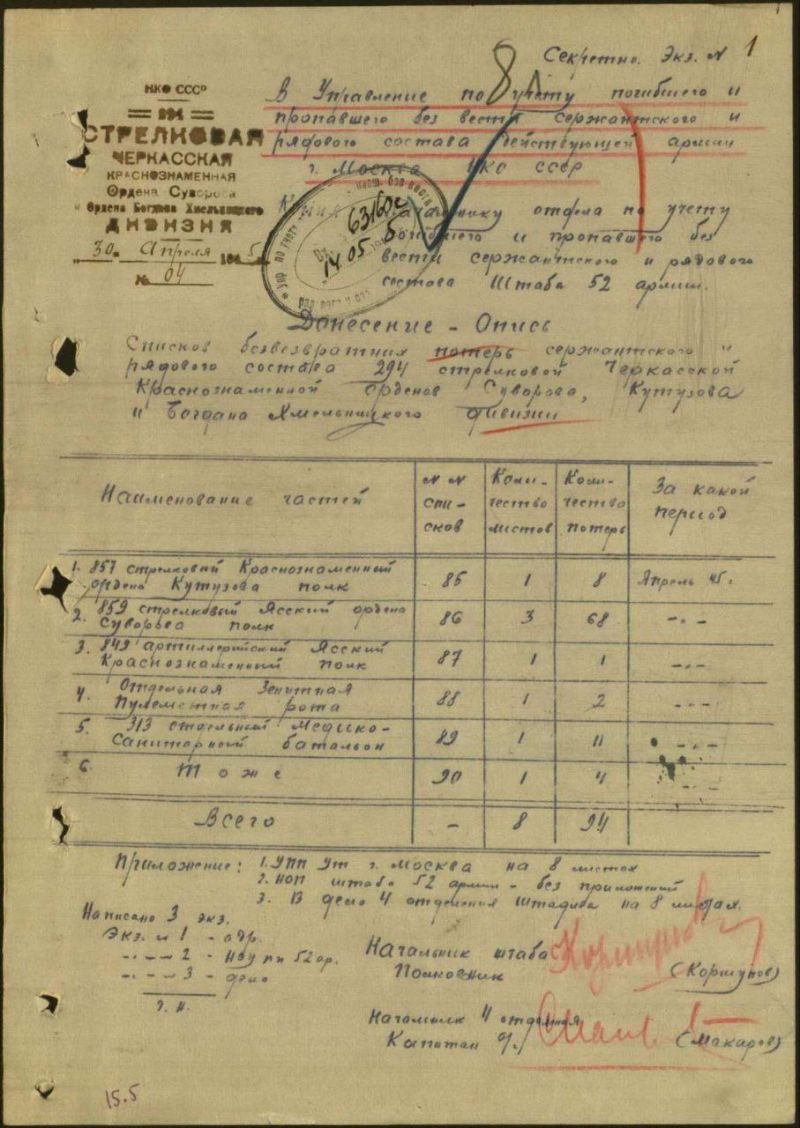 Секретно. Экз. N 1
НКО СССР
294
СТРЕЛКОВАЯ
ЧЕРКАССКАЯ
КРАСНОЗНАМЕННАЯ
Ордена Суворова
и Ордена Богдана Хмельницкого
ДИВИЗИЯ
"30" Апреля 1945
№ 04
В Управление по учету погибшего и
пропавшего без вести сержантского и
рядового состава действующей армии
г. Москва НКО СССР
63160с
14 05 5
Копия: Начальнику отдела по учету
погибшего и пропавшего без
вести сержантского и рядового
состава Штаба 52 армии.
Донесение - Опись
Списков безвозвратных потерь сержантского и
рядового состава 294 стрелковой Черкасской
Краснознаменной орденов Суворова, Кутузова
и Богдана Хмельницкого дивизии
Наименование частей
N N списков
Количество листов
Количество потерь
За какой период
1. 857 стрелковый Краснознаменный
ордена Кутузова полк 85 1 8 Апрель 45 г.
2. 859 стрелковый Ясский ордена
Суворова полк 86 3 68 -"-
3. 849 артиллерийский Ясский
Краснознаменный полк 87 1 1 -"-
4. Отдельная Зенитная
Пулеметная рота 88 1 2 -"-
5. 313 отдельный Медико-
Санитарный батальон 89 1 11 -"-
6 Тоже 90 1 4
Всего - 8 94
Приложение: 1. УПП Ут г. Москва на 8 листах
2. НОП штаба 52 армии - без приложений
3. В дело 4 отделения Штадива на 8 листах.
Написано 3 экз.
Экз. N 1 - адр.
-"- 2 - НОУ ПП 52 ар.
-"- 3 - дело
Начальник штаба
Полковник (Коршунов)
Начальник 4 отделения
Капитан (Макаров)
15.5